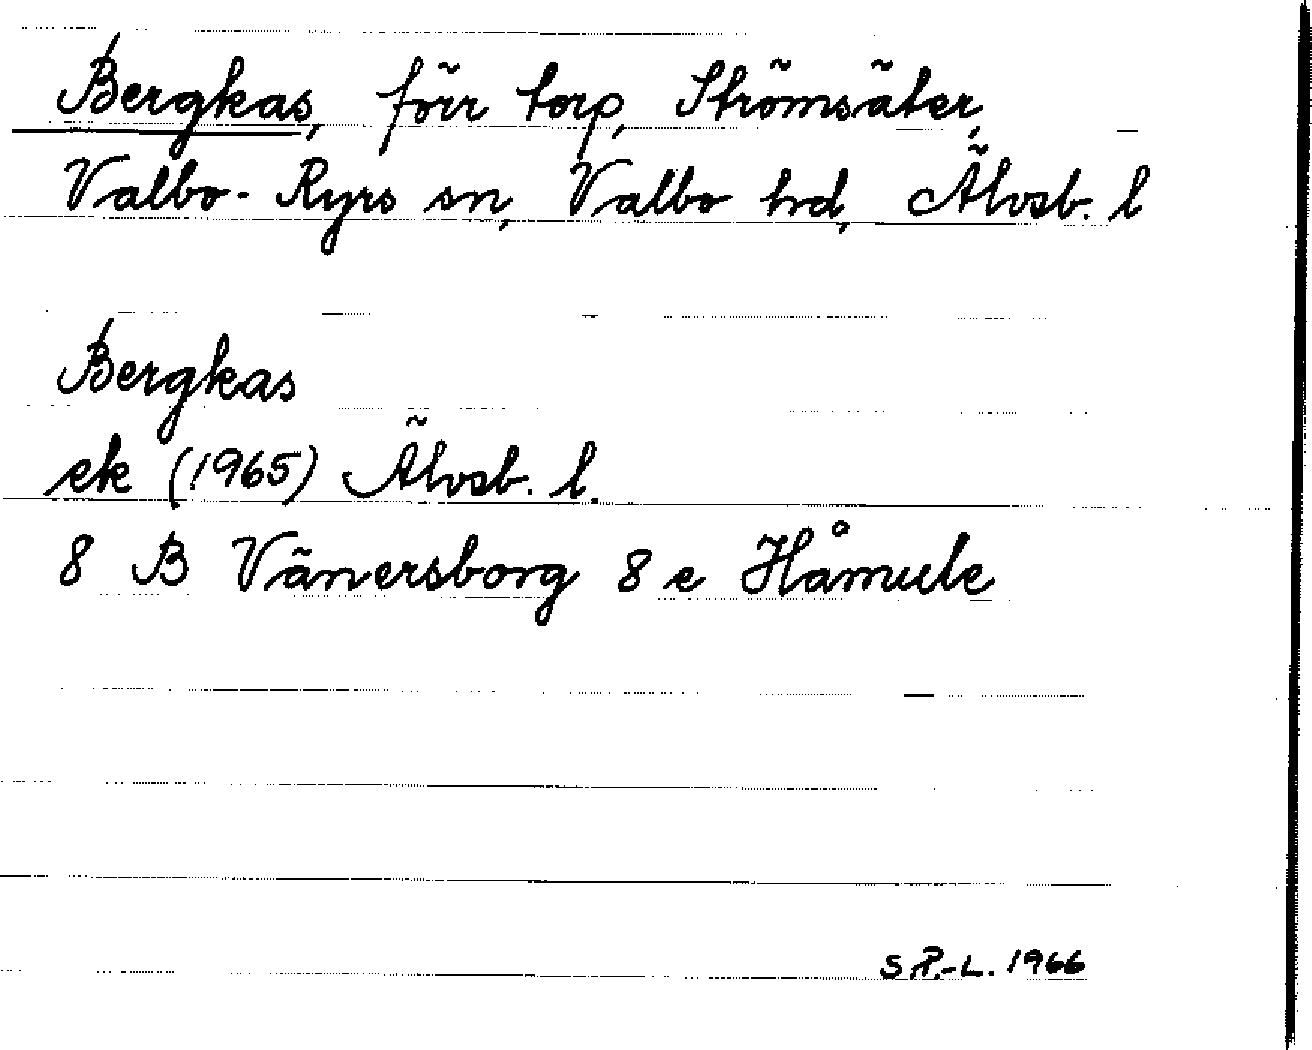 Bergkas, förr torp, Strömsäter,
Valbo-Ryrs sn, Valbo hd, Älvsb. l
Bergkas
ek (1965) Älvsb. l.
8 B Vänersborg 8 e Håmule
S.P.-L. 1966